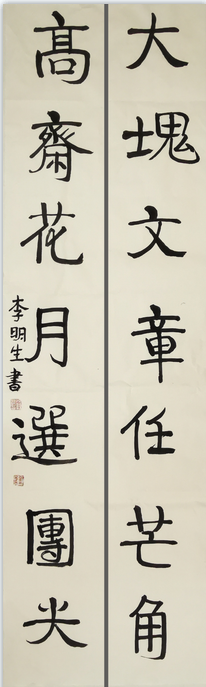 大塊文章任芒角
高齋花月選團尖
李明生書